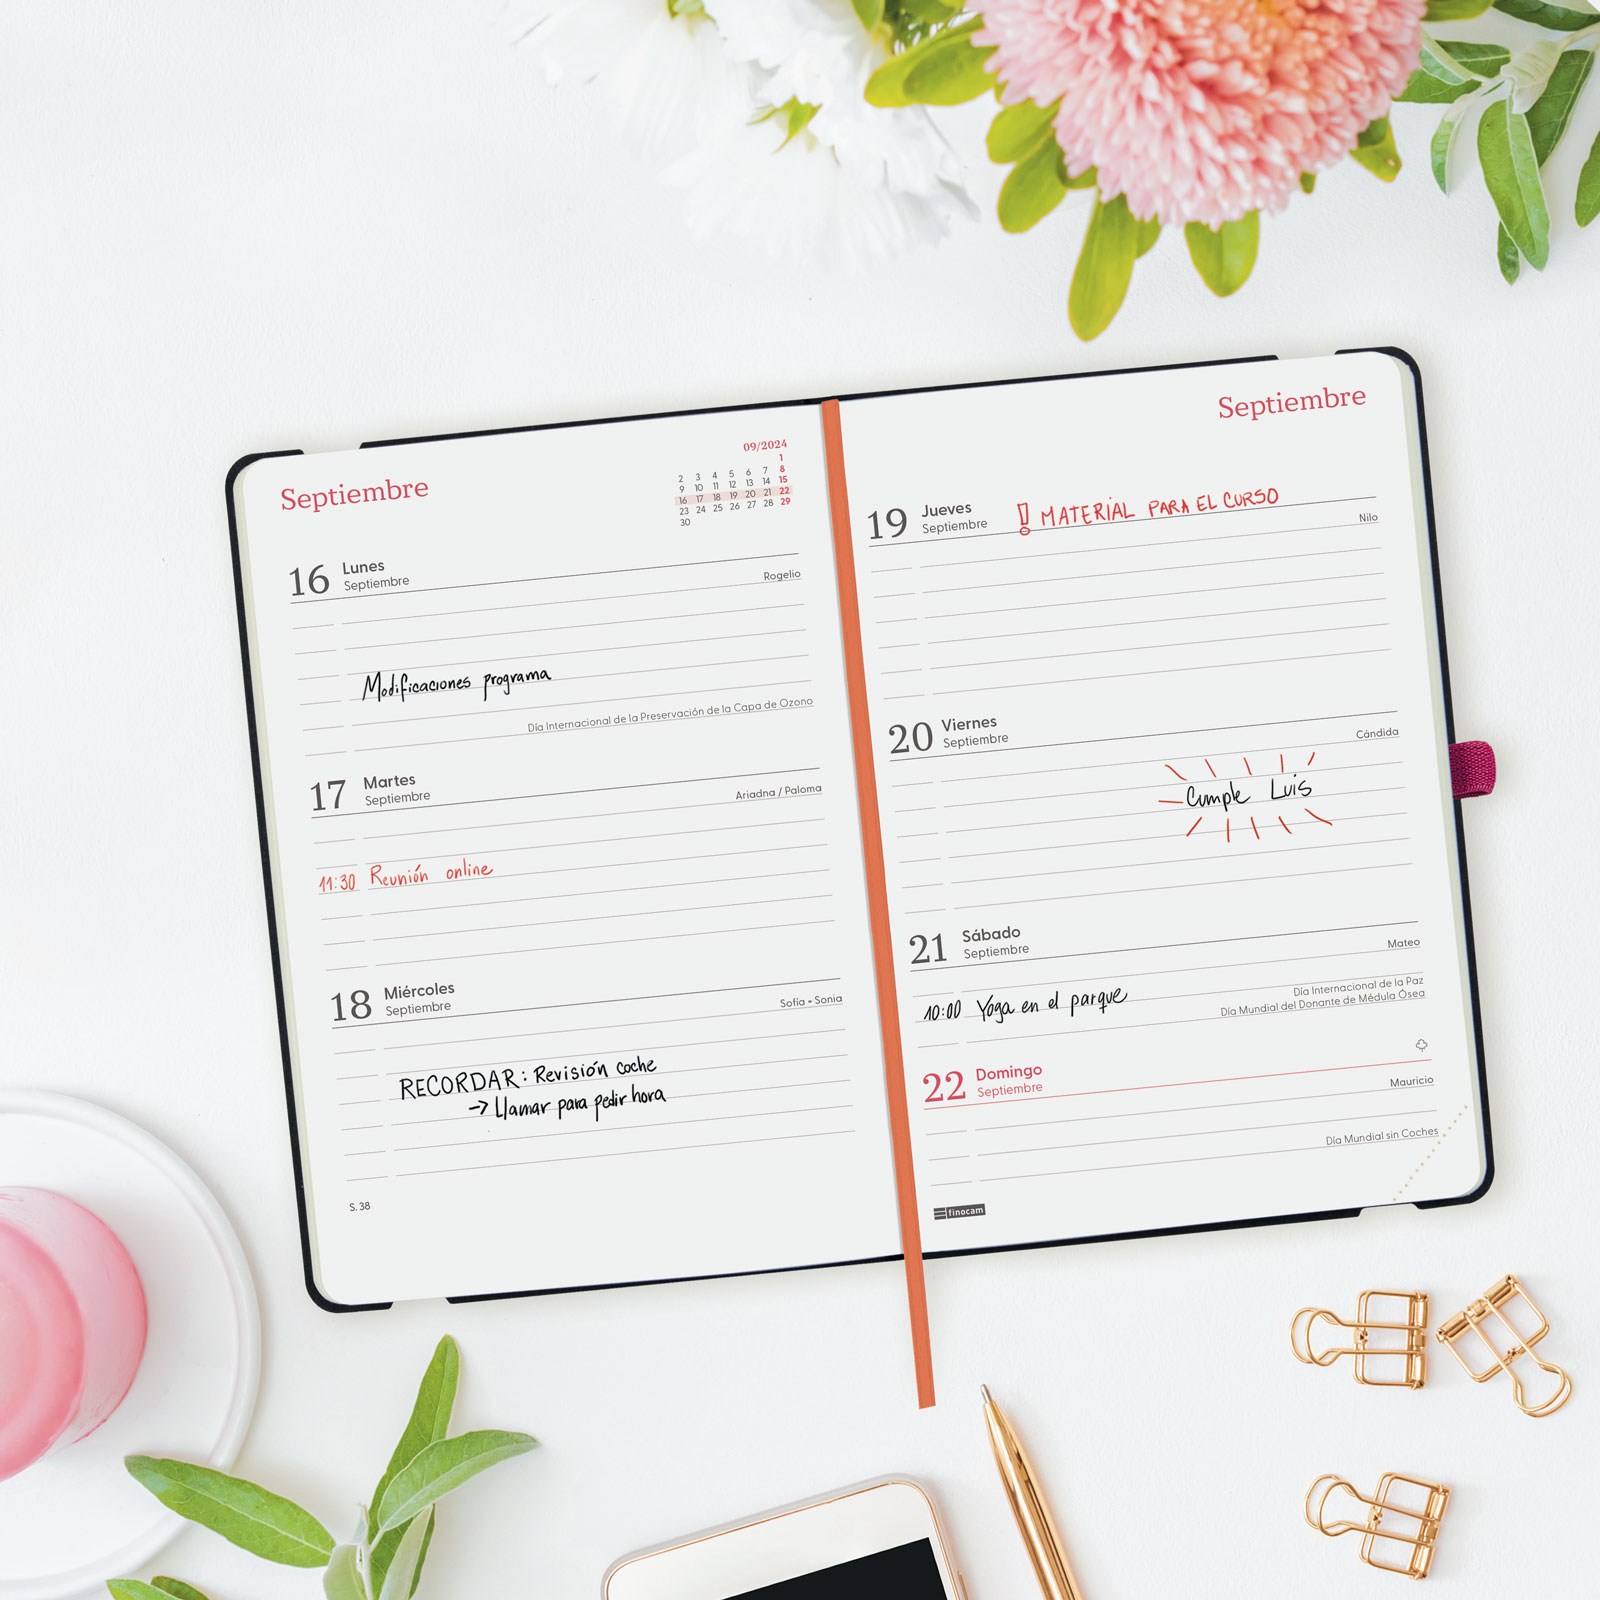 Septiembre
09/2024
1
2 3 4 5 6 7 8
9 10 11 12 13 14 15
16 17 18 19 20 21 22
23 24 25 26 27 28 29
30
16 Lunes
Septiembre
Rogelio
Modificaciones programa
Día Internacional de la Preservación de la Capa de Ozono
17 Martes
Septiembre
Ariadna / Paloma
11:30 Reunión online
18 Miércoles
Septiembre
Sofía - Sonia
RECORDAR: Revisión coche
→ Llamar para pedir hora
S. 38
Septiembre
19 Jueves
Septiembre
! MATERIAL PARA EL CURSO
Nilo
20 Viernes
Septiembre
Cándida
Cumple Luis
21 Sábado
Septiembre
Mateo
Día Internacional de la Paz
Día Mundial del Donante de Médula Ósea
10:00 Yoga en el parque
22 Domingo
Septiembre
Mauricio
Día Mundial sin Coches
finocam